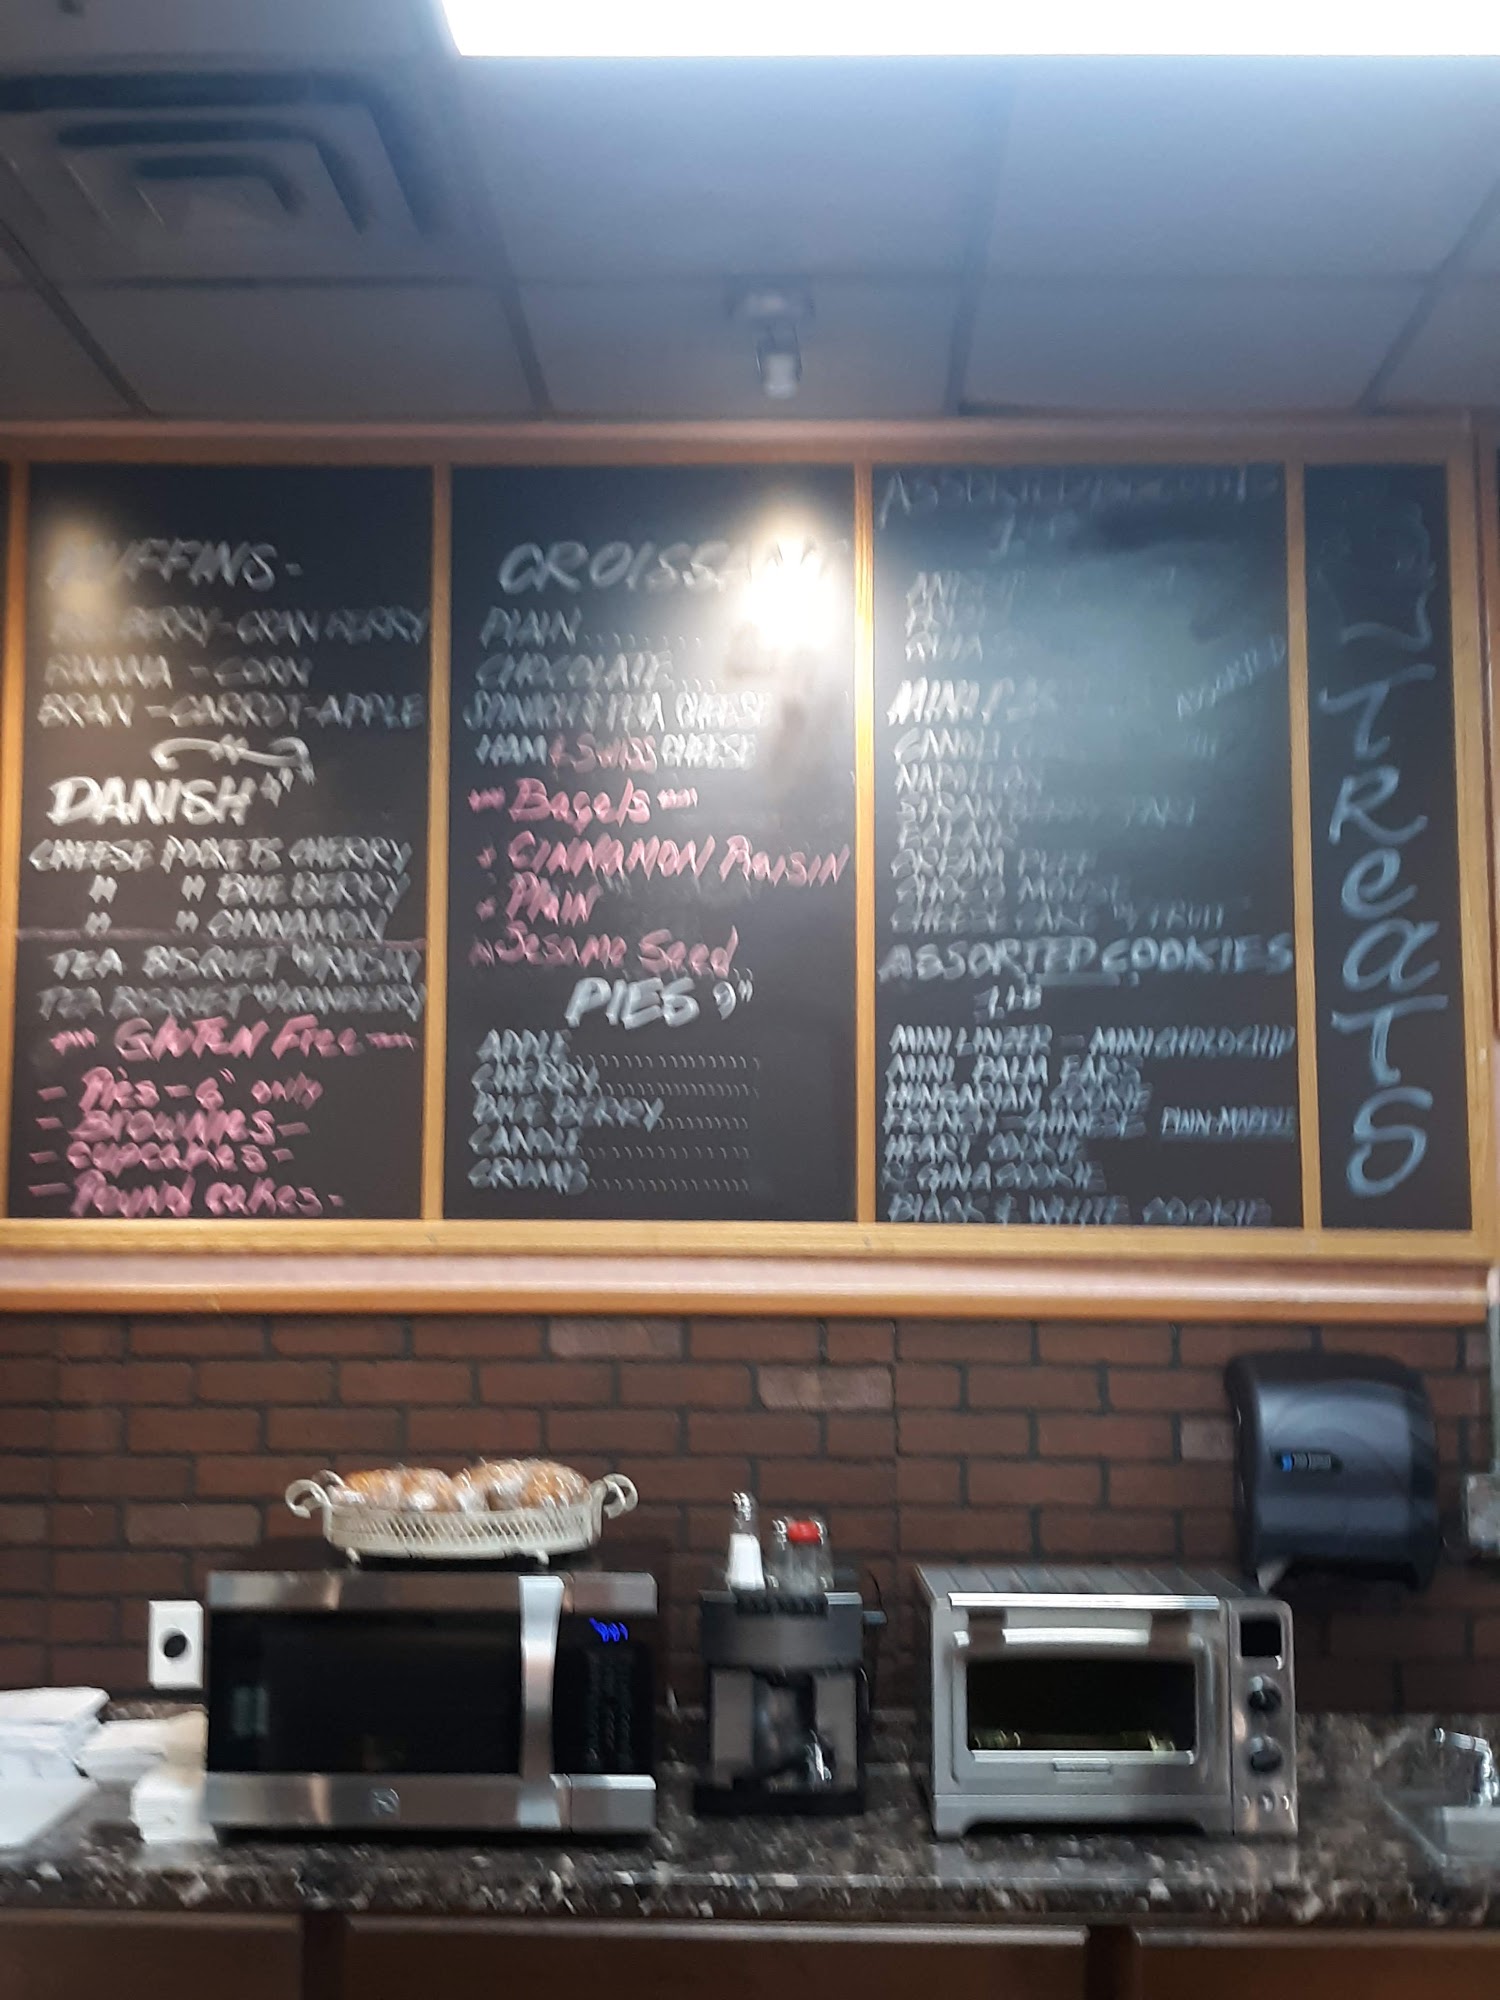 MUFFINS-
BERRY-CRANBERRY
BANANA - CORN
BRAN - CARROT-APPLE
DANISH
CHEESE POCKETS CHERRY
" " BLUEBERRY
" " CINNAMON
TEA BISQUET W/RAISIN
TEA BISQUET W/CRANBERRY
GLUTEN FREE
- Pies - 6" only
- BROWNIES -
- CUPCAKES -
- POUND CAKES -
CROISS
PLAIN
CHOCOLATE
CHEESE
HAM & SWISS CHEESE
Bagels
CINNAMON RAISIN
Plain
Sesame Seed
PIES 9"
APPLE
CHERRY
BLUE BERRY
ASSORTED
1 LB
ASSORTED
MINI
CANOLI
NAPOLEON
TART
ECLAIR
CREAM PUFF
CHOCO MOUSE
CHEESE CAKE W/ FRUIT
ASSORTED COOKIES
1 LB
MINI LINZER - MINI CHOLO CHIP
MINI PALM EARS
HUNGARIAN COOKIE
CHINESE PLAIN-MARBLE
HEART COOKIE
REGINA COOKIE
BLACK & WHITE COOKIE
TReaTS